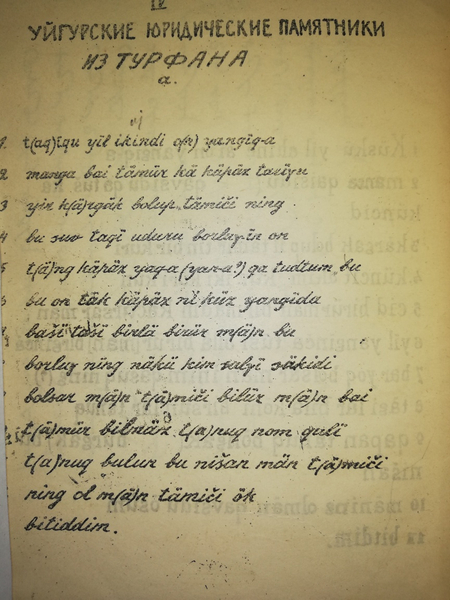 IV
УЙГУРСКИЕ ЮРИДИЧЕСКИЕ ПАМЯТНИКИ
ИЗ ТУРФАНА
a.
1. t(aq)ïqu yïl ikindi o(n) yangïq-a
2 manga bai tämür kä käpäz tarïyu
3 yir k(ä)rgäk bolup tämiči ning
4 bu suv taqï uduru borluγ-ïn on
5 t(ä)ng käpäz yaq-a (yan-a?) qa tudtum bu
6 bu on täk käpäz ni küz yangïda
baši taši birlä birür m(ä)n bu
borluγ ning näkü kim salγï säkidi
bolsar m(ä)n t(ä)miči bilür m(ä)n bai
t(ä)mür bilmäz t(a)nuq nom quli
t(a)nuq bulur bu nišan män t(ä)miči
ning ol m(ä)n tämiči ök
bitiddim.